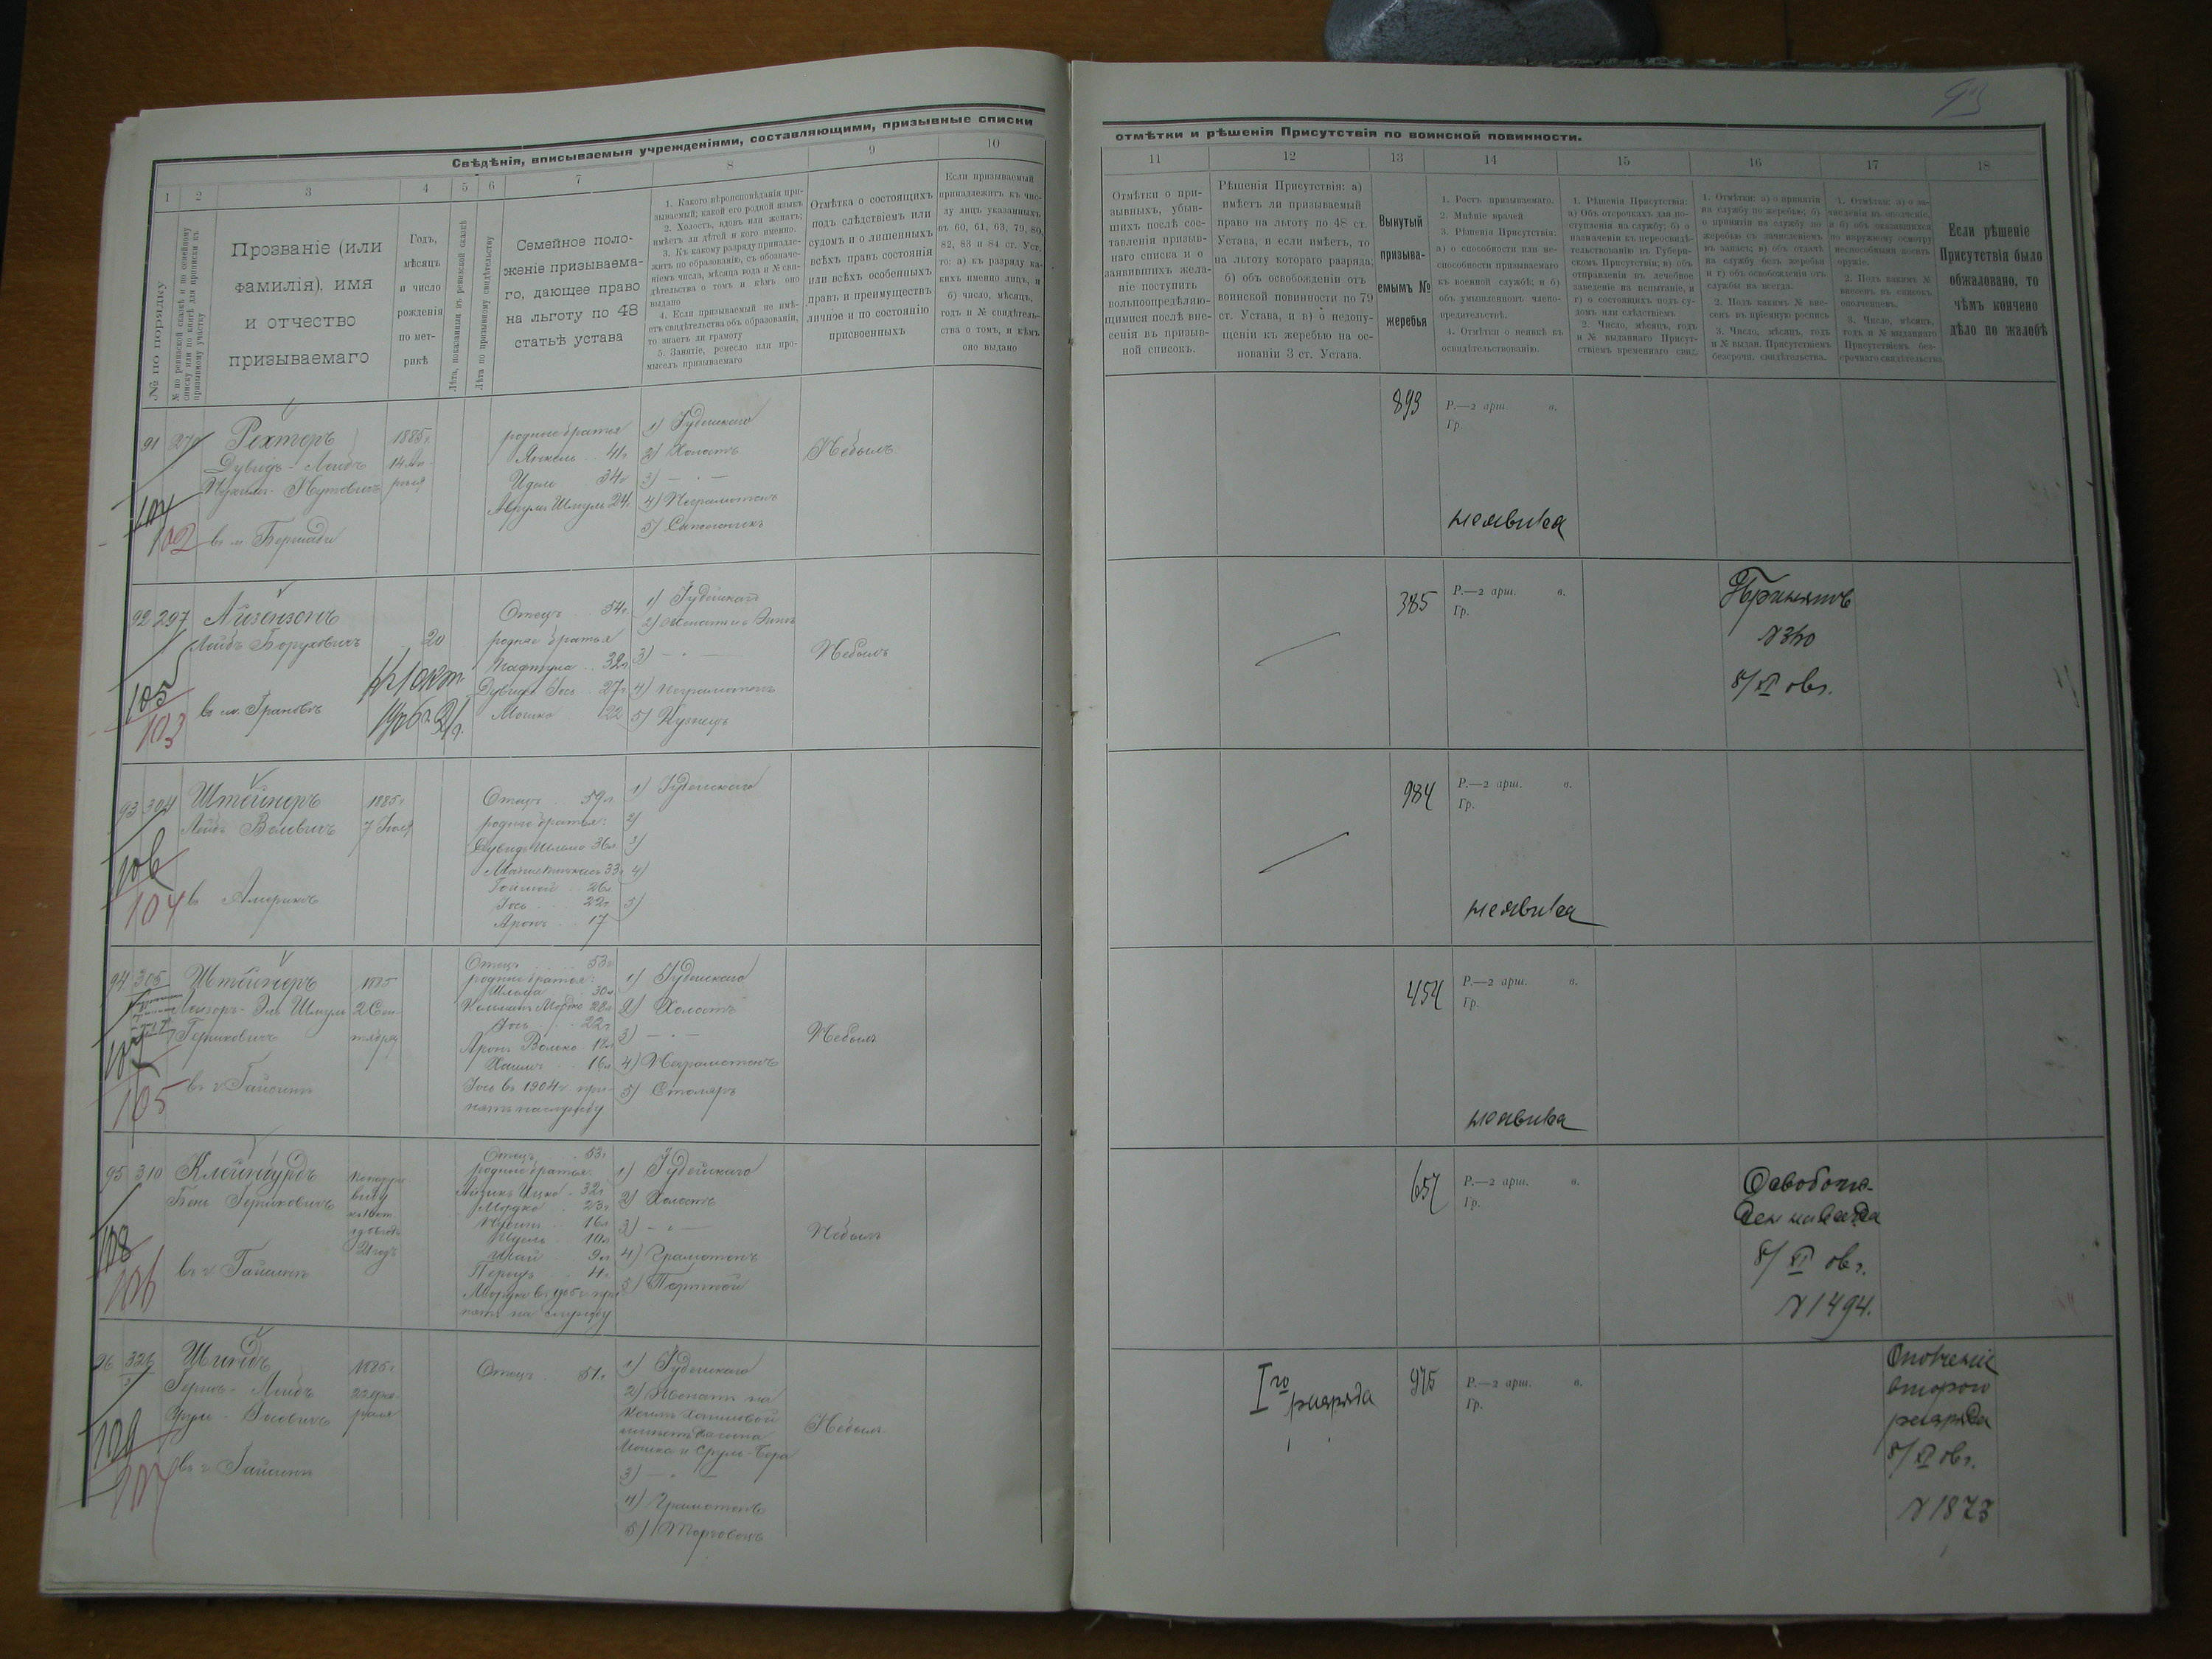 93
Свѣдѣнія, вписываемыя учрежденіями, составляющими, призывные списки
отмѣтки и рѣшенія Присутствія по воинской повинности.
1 2 3 4 5 6 7 8 9 10
11 12 13 14 15 16 17 18
№ по порядку
№ по ревизской сказкѣ и по семейному
списку или по книгѣ для приписки къ
призывному участку
Прозваніе (или
фамилія), имя
и отчество
призываемаго
Годъ,
мѣсяцъ
и число
рожденія
по мет-
рикѣ
Лѣта, показанныя въ ревизской сказкѣ
Лѣта по призывному свидѣтельству
Семейное поло-
женіе призываема-
го, дающее право
на льготу по 48
статьѣ устава
1. Какого вѣроисповѣданія при-
зываемый; какой его родной языкъ
2. Холостъ, вдовъ или женатъ;
имѣетъ ли дѣтей и кого именно.
3. Къ какому разряду принадле-
житъ по образованію, съ обозначе-
ніемъ числа, мѣсяца года и № сви-
дѣтельства о томъ и кѣмъ оно
выдано
4. Если призываемый не имѣ-
етъ свидѣтельства объ образованіи,
то знаетъ ли грамоту
5. Занятіе, ремесло или про-
мыселъ призываемаго
Отмѣтка о состоящихъ
подъ слѣдствіемъ или
судомъ и о лишенныхъ
всѣхъ правъ состоянія
или всѣхъ особенныхъ
правъ и преимуществъ
личное и по состоянію
присвоенныхъ
Если призываемый
принадлежитъ къ чис-
лу лицъ указанныхъ
въ 60, 61, 63, 79, 80,
82, 83 и 84 ст. Уст,
то: а) къ разряду ка-
кихъ именно лицъ, и
б) число, мѣсяцъ,
годъ и № свидѣтель-
ства о томъ, и кѣмъ
оно выдано
Отмѣтки о при-
зывныхъ, убыв-
шихъ послѣ сос-
тавленія призыв-
наго списка и о
заявившихъ жела-
ніе поступить
вольноопредѣляю-
щимися послѣ вне-
сенія въ призыв-
ной списокъ.
Рѣшенія Присутствія: а)
имѣетъ ли призываемый
право на льготу по 48 ст.
Устава, и если имѣетъ, то
на льготу котораго разряда;
б) объ освобожденіи отъ
воинской повинности по 79
ст. Устава, и в) о недопу-
щеніи къ жеребью на ос-
нованіи 3 ст. Устава.
Вынутый
призыва-
емымъ №
жеребья
1. Ростъ призываемаго.
2. Мнѣніе врачей
3. Рѣшенія Присутствія:
а) о способности или не-
способности призываемаго
къ военной службѣ; и б)
объ умышленномъ члено-
вредительствѣ.
4. Отмѣтки о неявкѣ къ
освидѣтельствованію.
1. Рѣшенія Присутствія:
а) Объ отсрочкахъ для по-
ступленія на службу; б) о
назначеніи къ переосвидѣ-
тельствованію въ Губерн-
скомъ Присутствіи; в) объ
отправленіи въ лечебное
заведеніе на испытаніе, и
г) о состоящихъ подъ су-
домъ или слѣдствіемъ
2. Число, мѣсяцъ, годъ
и № выданнаго Присут-
ствіемъ временнаго свид.
1. Отмѣтки: а) о принятіи
на службу по жеребью; б)
о принятіи на службу по
жеребью съ зачисленіемъ
въ запасъ; в) объ отдачѣ
на службу безъ жеребья
и г) объ освобожденіи отъ
службы на всегда.
2. Подъ какимъ № вне-
сенъ въ пріемную роспись
3. Число, мѣсяцъ, годъ
и № выдан. Присутствіемъ
безсрочн. свидѣтельства.
1. Отмѣтки: а) о за-
численіи въ ополченіе,
и б) объ оказавшихся
по наружному осмотру
неспособными носить
оружіе.
2. Подъ какимъ №
внесенъ въ списокъ
ополченцевъ.
3. Число, мѣсяцъ,
годъ и № выданнаго
Присутствіемъ без-
срочнаго свидѣтельства
Если рѣшеніе
Присутствія было
обжаловано, то
чѣмъ кончено
дѣло по жалобѣ
91 Рехтеръ
Дувидъ-Лейбъ
1885 г.
родные братья
Янкель 41 г
Идель 34 г
Аврумъ Шмуль 24 г.
1) Іудейскаго
2) Холостъ
3) —
4) Неграмотенъ
5) Сапожникъ
Небылъ
893
Р.—2 арш. в.
Гр.
неявился
102
въ м. Бершади
92 297 Айзензонъ
Лейбъ Боруховичъ
20
Отецъ 54 г.
родные братья
Нафтула 32 г.
Дувидъ Іось 27 г.
Мошко 22
1) Іудейскаго
3) —
4) Неграмотенъ
5) Кузнецъ
Небылъ
385
Р.—2 арш. в.
Гр.
Принятъ
№ 340
8/XI 06 г.
105
103
въ м. Грановѣ
к 1 окт.
1906 г. 21 г.
93 304 Штейнеръ
Лейбъ Воловичъ
1885 г
7 Іюля
Отецъ 59 л.
родные братья:
Дувидъ Шлема 36 л
33 г
26 л
Іось 22 г
Аронъ 17
1) Іудейскаго
2)
3)
4)
5)
984
Р.—2 арш. в.
Гр.
неявился
106
104
въ Америкѣ
94 305 Штейнеръ
Лейзоръ-Эль Шмуль
Гершковичъ
1885
2 Сен-
тября
Отецъ 53 г
родные братья:
Шлема 30 л
Мордко 28 л
Іось 22 г
Аронъ Волько 18 л
Хаимъ 16 л
Іось въ 1904 г при-
нятъ на службу
1) Іудейскаго
2) Холостъ
3) —
4) Неграмотенъ
5) Столяръ
Небылъ
454
Р.—2 арш. в.
Гр.
неявился
107
105
въ г. Гайсинѣ
95 310 Клейнгурдъ
Бень Гершковичъ
По наруж.
виду
к 1 окт.
21 годъ
Отецъ 53 г
родные братья:
Айзикъ Ицко 32 г
Мордко 23 г
16 л
Идель 10 л
Шая 9 л
Перецъ 4 г.
Мордко въ 1905 г при
нятъ на службу
1) Іудейскаго
2) Холостъ
3) —
4) Грамотенъ
5) Портной
Небылъ
657
Р.—2 арш. в.
Гр.
Освобож-
денъ навсегда
8/XI 06 г.
№ 1494.
108
106
въ г. Гайсинѣ
96 321
Гершъ-Лейбъ
1885 г
22 фев-
раля
Отецъ 51 г.
1) Іудейскаго
2) Женатъ на
Мошка и Срулъ-Бера
3) —
4) Грамотенъ
5) Торговецъ
Небылъ
I го
разряда
975
Р.—2 арш. в.
Гр.
Ополченіе
второго
разряда
8/XI 06 г.
№ 1873
109
107
въ г. Гайсинѣ